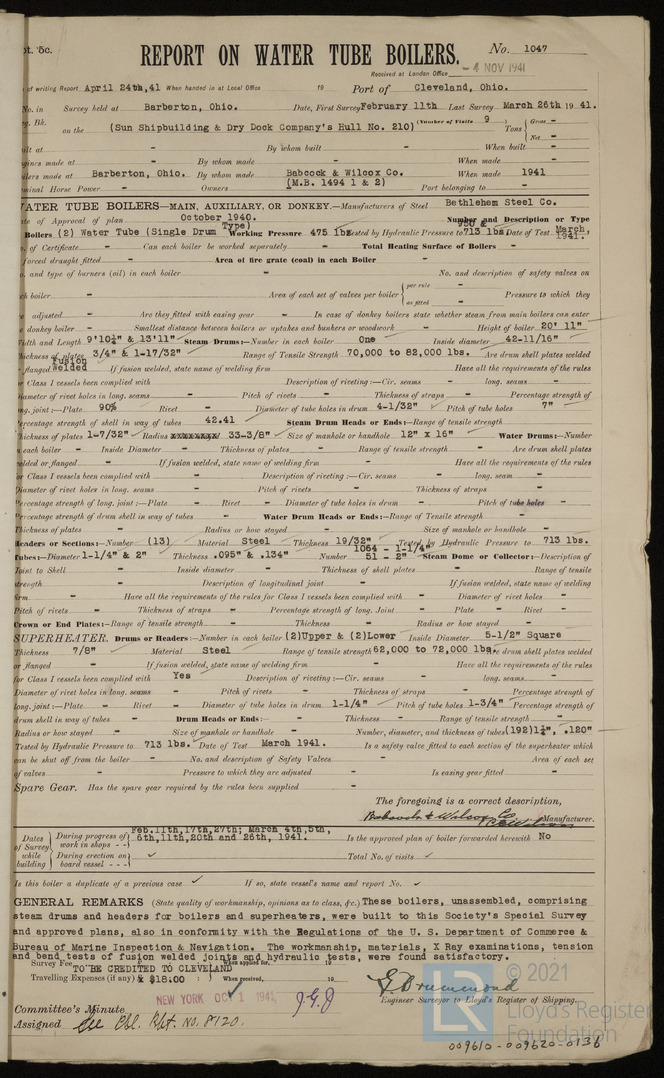 pt. 5c.
REPORT ON WATER TUBE BOILERS.
No. 1047
Received at London Office - 4 NOV 1941
of writing Report April 24th,41 When handed in at Local Office 19 Port of Cleveland, Ohio.
No. in Survey held at Barberton, Ohio. Date, First Survey February 11th Last Survey March 26th 19 41.
g. Bk. (Number of Visits 9 ) Gross -
on the (Sun Shipbuilding & Dry Dock Company's Hull No. 210) Tons
Net -
ilt at - By whom built - When built -
gines made at - By whom made - When made -
ilers made at Barberton, Ohio. By whom made Babcock & Wilcox Co. When made 1941
minal Horse Power - Owners (M.B. 1494 1 & 2) Port belonging to -
WATER TUBE BOILERS—MAIN, AUXILIARY, OR DONKEY.—Manufacturers of Steel Bethlehem Steel Co.
te of Approval of plan October 1940. Number and Description or Type
Boilers (2) Water Tube (Single Drum Type) Working Pressure 475 lbs Tested by Hydraulic Pressure to 713 lbs. Date of Test March, 1941.
. of Certificate - Can each boiler be worked separately - Total Heating Surface of Boilers -
forced draught fitted - Area of fire grate (coal) in each Boiler -
o. and type of burners (oil) in each boiler - No. and description of safety valves on
ch boiler - Area of each set of valves per boiler { per rule - as fitted - Pressure to which they
e adjusted - Are they fitted with easing gear - In case of donkey boilers state whether steam from main boilers can enter
e donkey boiler - Smallest distance between boilers or uptakes and bunkers or woodwork - Height of boiler 20' 11"
Width and Length 9'10¼" & 13'11" Steam Drums:—Number in each boiler One Inside diameter 42-11/16"
hickness of plates 3/4" & 1-17/32" Range of Tensile Strength 70,000 to 82,000 lbs. Are drum shell plates welded
flanged Fusion Welded If fusion welded, state name of welding firm - Have all the requirements of the rules
or Class I vessels been complied with - Description of riveting:—Cir. seams - long. seams -
Diameter of rivet holes in long. seams - Pitch of rivets - Thickness of straps - Percentage strength of
ng. joint:—Plate 90% Rivet - Diameter of tube holes in drum 4-1/32" Pitch of tube holes 7"
Percentage strength of shell in way of tubes 42.41 Steam Drum Heads or Ends:—Range of tensile strength -
Thickness of plates 1-7/32" Radius xxxxxxxx 33-3/8" Size of manhole or handhole 12" x 16" Water Drums:—Number
n each boiler - Inside Diameter - Thickness of plates - Range of tensile strength - Are drum shell plates
welded or flanged - If fusion welded, state name of welding firm - Have all the requirements of the rules
or Class I vessels been complied with - Description of riveting:—Cir. seams - long. seam -
Diameter of rivet holes in long. seams - Pitch of rivets - Thickness of straps -
Percentage strength of long. joint:—Plate - Rivet - Diameter of tube holes in drum - Pitch of tube holes -
Percentage strength of drum shell in way of tubes - Water Drum Heads or Ends:—Range of Tensile strength -
Thickness of plates - Radius or how stayed - Size of manhole or handhole -
Headers or Sections:—Number (13) Material Steel Thickness 19/32" Tested by Hydraulic Pressure to 713 lbs.
Tubes:—Diameter 1-1/4" & 2" Thickness .095" & .134" Number 1064 - 1-1/4" 51 - 2" Steam Dome or Collector:—Description of
Joint to Shell - Inside diameter - Thickness of shell plates - Range of tensile
strength - Description of longitudinal joint - If fusion welded, state name of welding
firm - Have all the requirements of the rules for Class I vessels been complied with - Diameter of rivet holes -
Pitch of rivets - Thickness of straps - Percentage strength of long. Joint - Plate - Rivet -
Crown or End Plates:—Range of tensile strength - Thickness - Radius or how stayed -
SUPERHEATER. Drums or Headers:—Number in each boiler (2)Upper & (2)Lower Inside Diameter 5-1/2" Square
Thickness 7/8" Material Steel Range of tensile strength 62,000 to 72,000 lbs. Are drum shell plates welded
or flanged - If fusion welded, state name of welding firm - Have all the requirements of the rules
for Class I vessels been complied with Yes Description of riveting:—Cir. seams - long. seams -
Diameter of rivet holes in long. seams - Pitch of rivets - Thickness of straps - Percentage strength of
long. joint:—Plate - Rivet - Diameter of tube holes in drum 1-1/4" Pitch of tube holes 1-3/4" Percentage strength of
drum shell in way of tubes - Drum Heads or Ends:— Thickness - Range of tensile strength -
Radius or how stayed - Size of manhole or handhole - Number, diameter, and thickness of tubes (192)1¼", .120"
Tested by Hydraulic Pressure to 713 lbs. Date of Test March 1941. Is a safety valve fitted to each section of the superheater which
can be shut off from the boiler - No. and description of Safety Valves - Area of each set
of valves - Pressure to which they are adjusted - Is easing gear fitted -
Spare Gear. Has the spare gear required by the rules been supplied -
The foregoing is a correct description,
Babcock & Wilcox Co. Manufacturer.
Dates of Survey while building
During progress of work in shops - - Feb.11th,17th,27th; March 4th,5th, 6th,11th,20th and 26th, 1941. Is the approved plan of boiler forwarded herewith No
During erection on board vessel - - - ✓ Total No. of visits ✓
Is this boiler a duplicate of a previous case ✓ If so, state vessel's name and report No. ✓
GENERAL REMARKS (State quality of workmanship, opinions as to class, &c.) These boilers, unassembled, comprising
steam drums and headers for boilers and superheaters, were built to this Society's Special Survey
and approved plans, also in conformity with the Regulations of the U. S. Department of Commerce &
Bureau of Marine Inspection & Navigation. The workmanship, materials, X Ray examinations, tension
and bend tests of fusion welded joints and hydraulic tests, were found satisfactory.
Survey Fee When applied for, 19
TO BE CREDITED TO CLEVELAND
Travelling Expenses (if any) $ $18.00 : When received, 19
Engineer Surveyor to Lloyd's Register of Shipping.
NEW YORK OCT 1 1941
Committee's Minute
Assigned See Cbl. Rpt. No. 8120.
© 2021
LR
Lloyd's Register
Foundation
009610-009620-0136